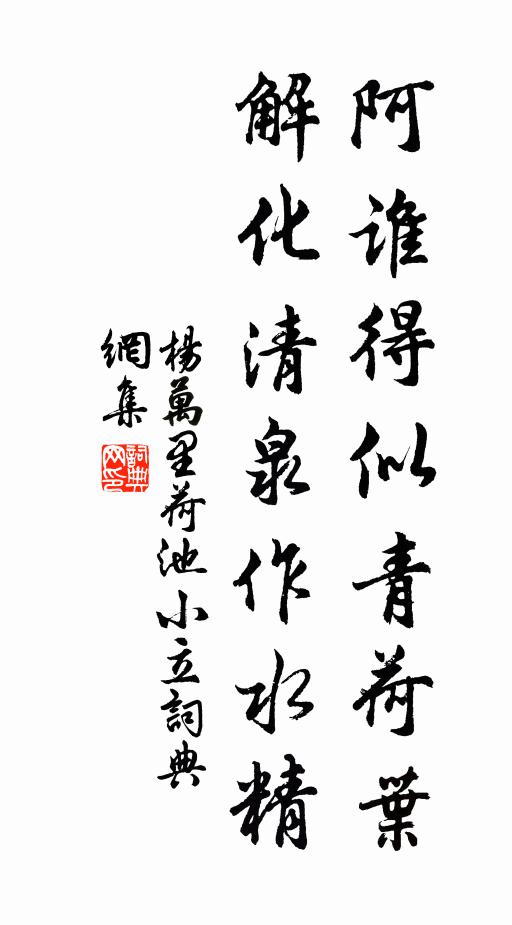 阿誰得似青荷葉
解化清泉作水精
楊萬里荷池小立詞典
網集
詞典
网印